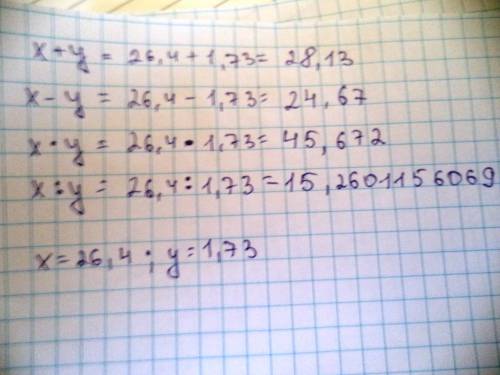 x+y = 26,4+1,73= 28,13
x-y = 26,4-1,73= 24,67
x·y = 26,4·1,73= 45,672
x:y = 26,4:1,73=15,2601156069
x=26,4; y=1,73